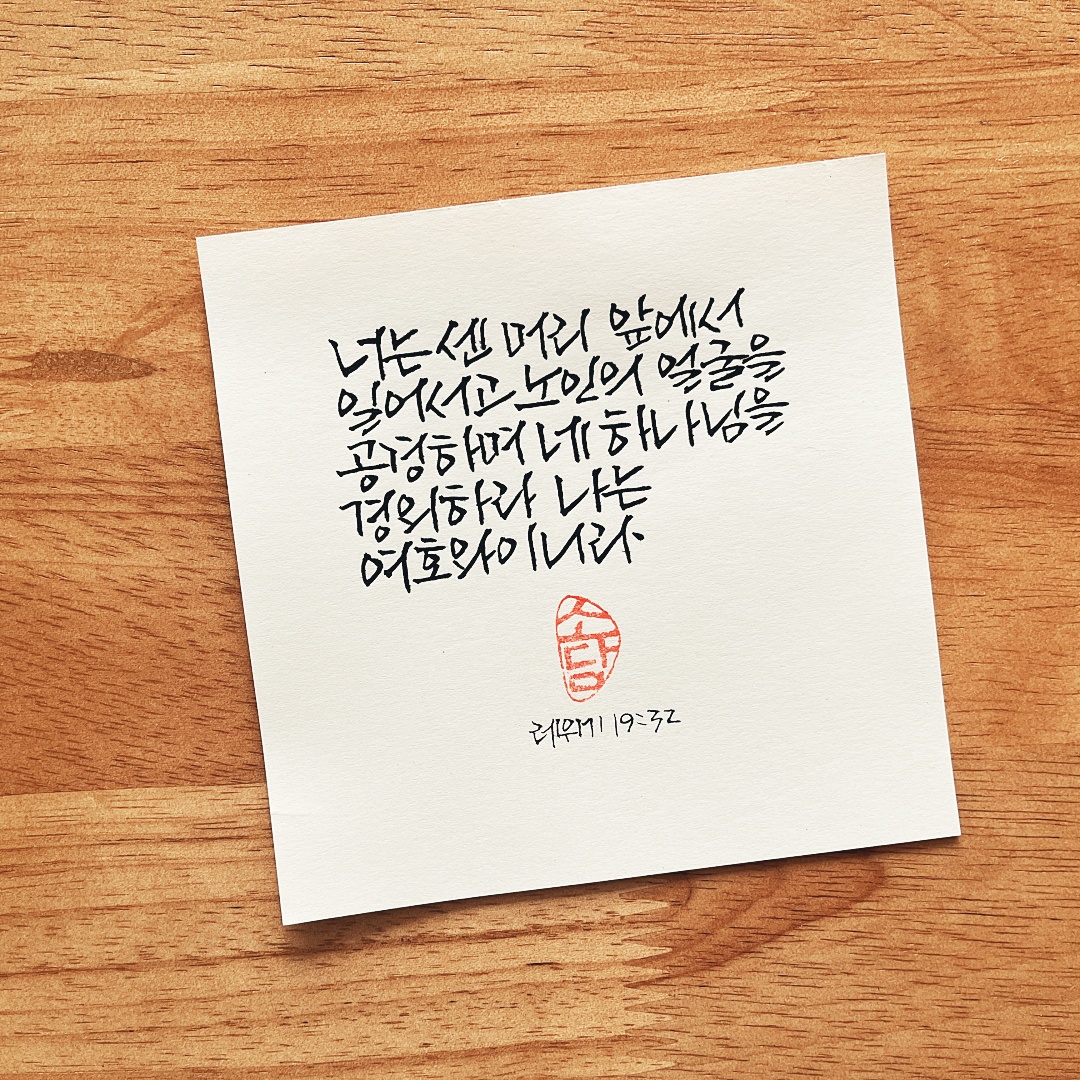 너는 센 머리 앞에서
일어서고 노인의 얼굴을
공경하며 네 하나님을
경외하라 나는
여호와이니라.
소담
레위기 19:32